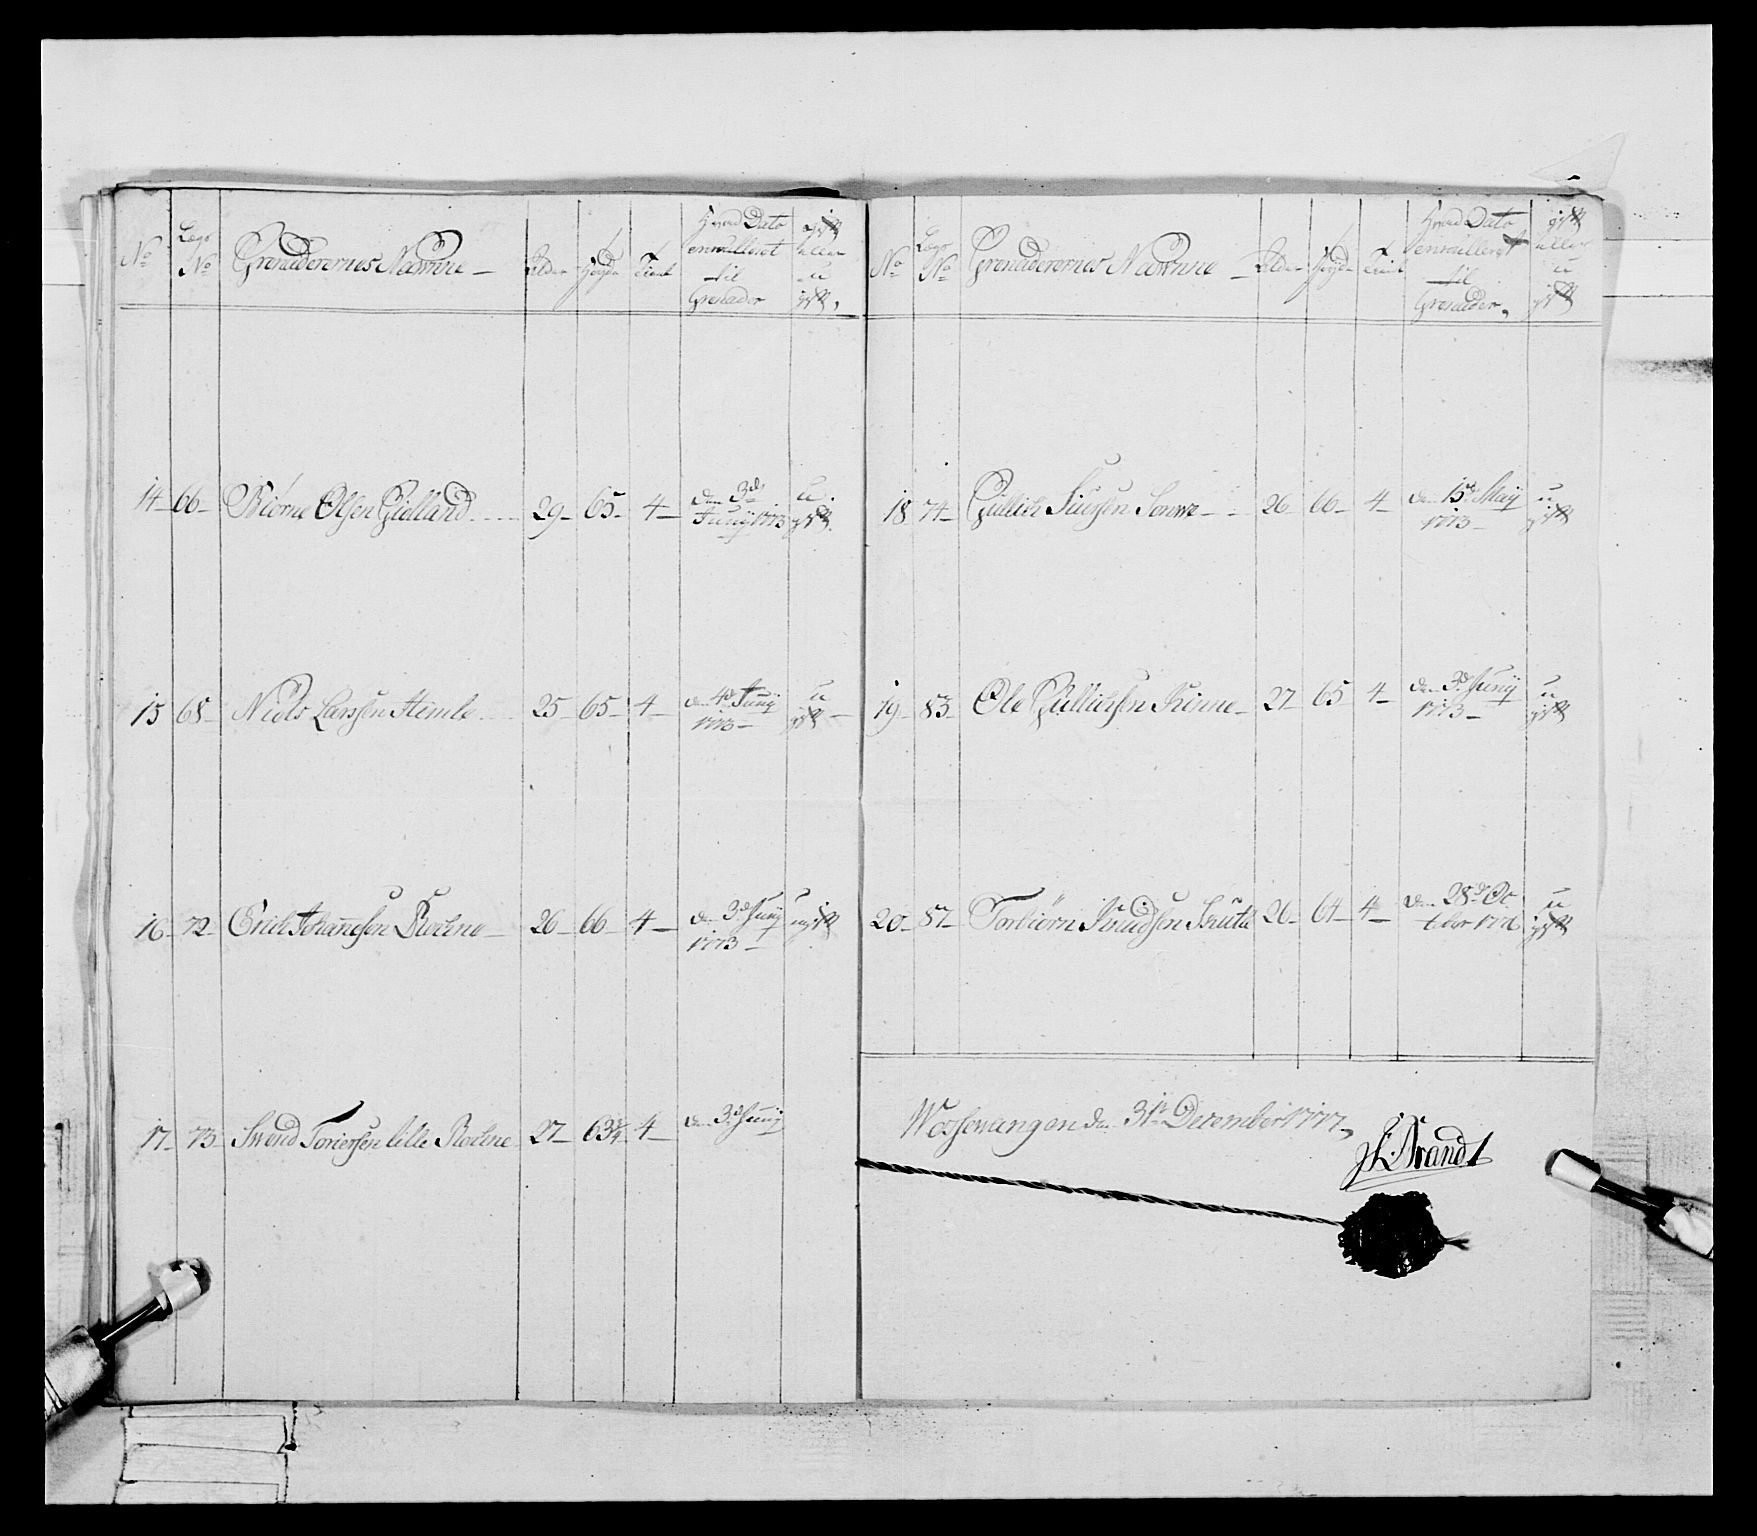 No
Lægs No
Grenaderernes Nawnne
Alder
Høyde
Tient
Hvad Dato
enrulleret
til
Grenader
gift
eller
u
gift
14 66 Biørne Olsen Gielland 29 65 4 den 3de Junij 1773 u gift
15 68 Niels Larssen Himle 25 65 4 den 4de Junij 1773 u gift
16 72 Erich Johannesen Rochne 26 66 4 den 3de Junij 1773 ugift
17 73 Swend Toriersen lille Rochne 27 63¾ 4 den 3de Junij
No
Lægs No
Grenaderernes Nawnne
Alder
Høyde
Tient
Hvad Dato
enrulleret
til
Grenader
gift
eller
u
gift
18 74 Gullich Siursen Sonwe 26 66 4 den 15de Maij 1773 u gift
19 83 Ole Gullichsen Rinne 27 65 4 den 3de Junij 1773 u gift
20 87 Torbiørn Knudsen 26 64 4 den 28de Octobr 1776 u gift
Wossewangen den 31te December 1777
Brandt